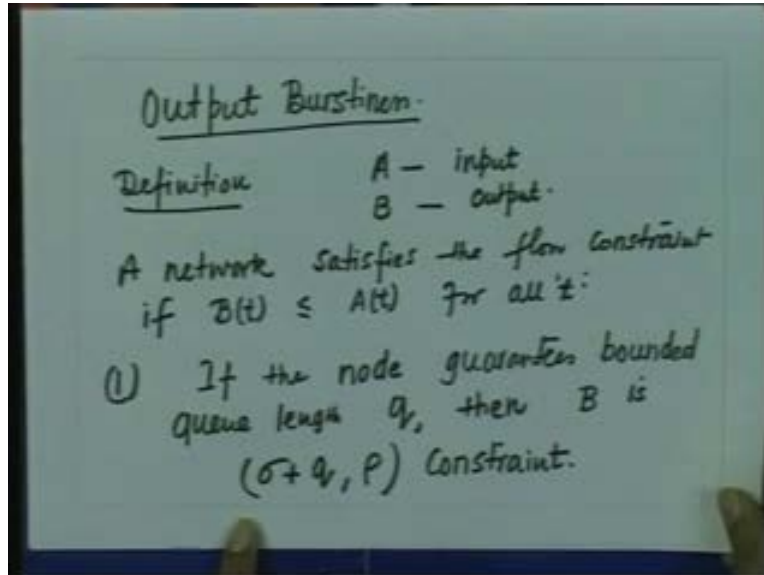 Output Burstiness.
Definition A – input
B – output.
A network satisfies the flow constraint
if B(t) ≤ A(t) for all 't'.
① If the node guarantees bounded
queue length q, then B is
(σ+q, ρ) constraint.